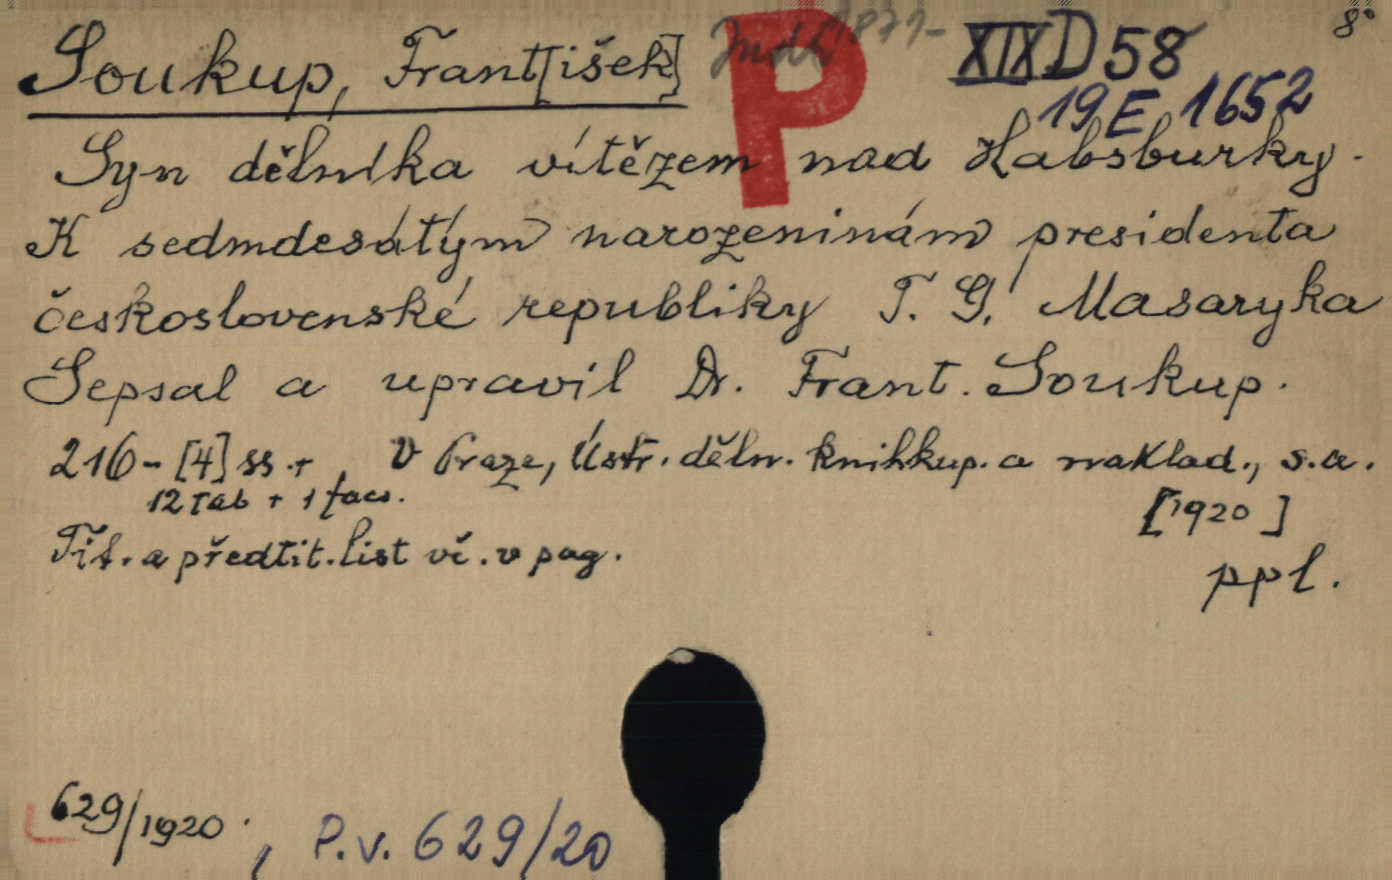 Soukup, Frant[išek] JUDr 1871- XIX D 58 8°
P
19 E 1652
Syn dělníka vítězem nad Habsburky.
K sedmdesátým narozeninám presidenta
československé republiky T. G. Masaryka
Sepsal a upravil Dr. Frant. Soukup.
216-[4] ss.+ V Praze, Ústř. děln. knihkup. a naklad., s.a.
12 tab + 1 facs. [1920]
Tit. a předtit. list vč. v pag.
ppl.
629/1920. , P.v. 629/20